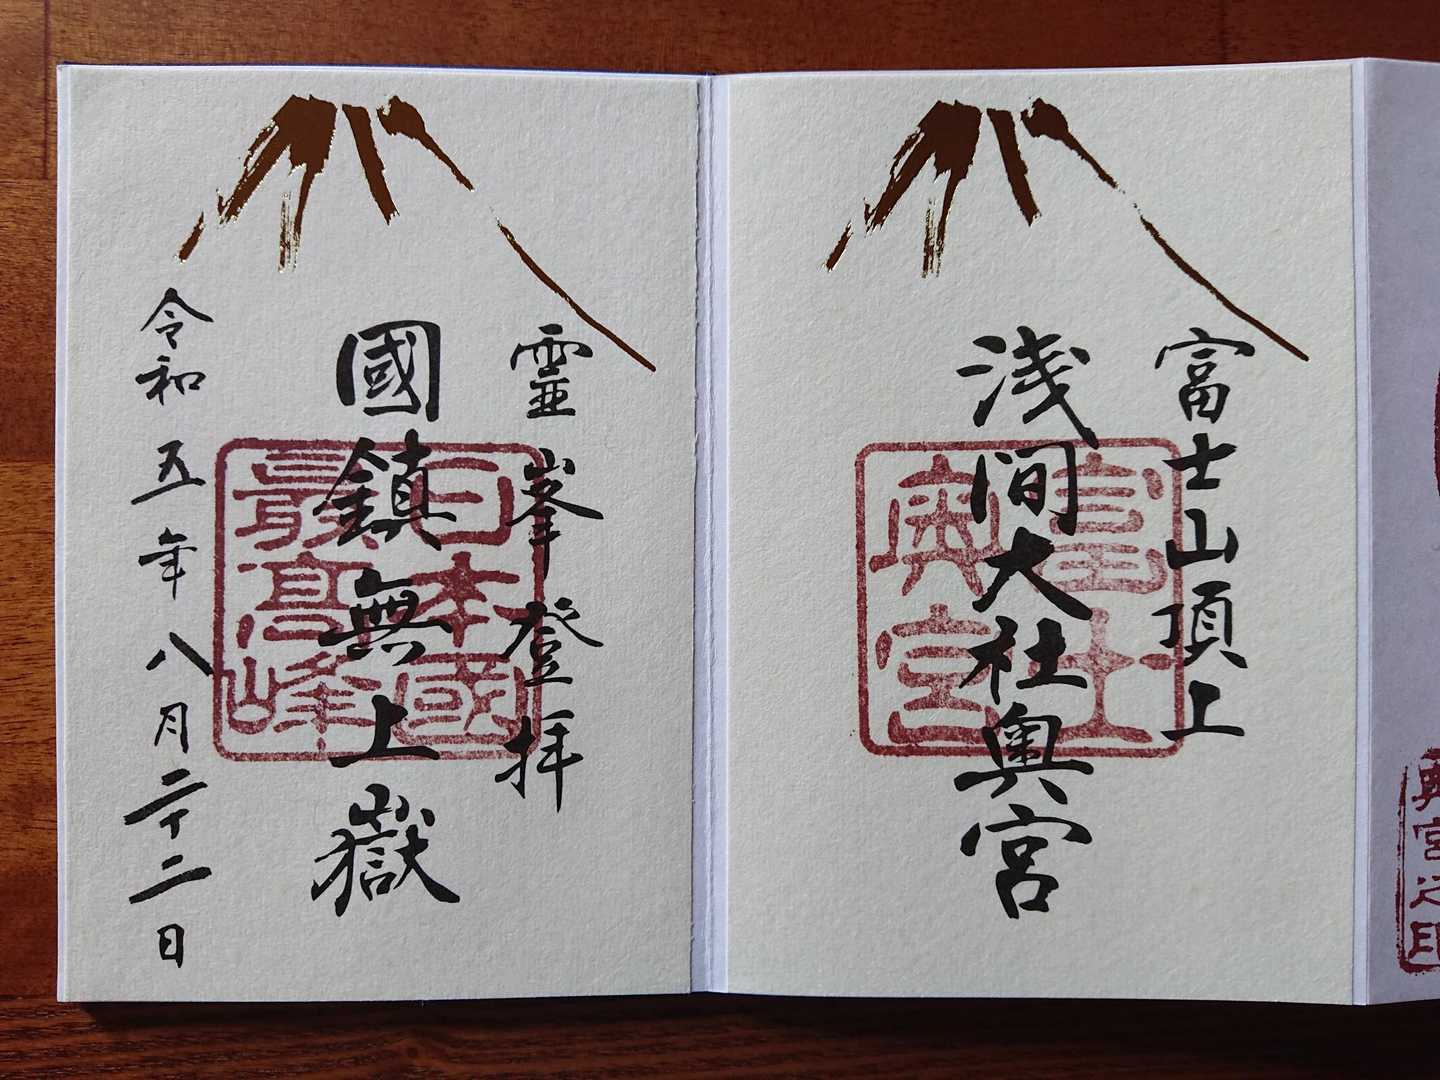 富士山頂上
浅間大社奥宮
富士
奥宮
靈峯登拝
國鎮無上嶽
日本國
最高峰
令和五年八月二十二日
奥宮之印